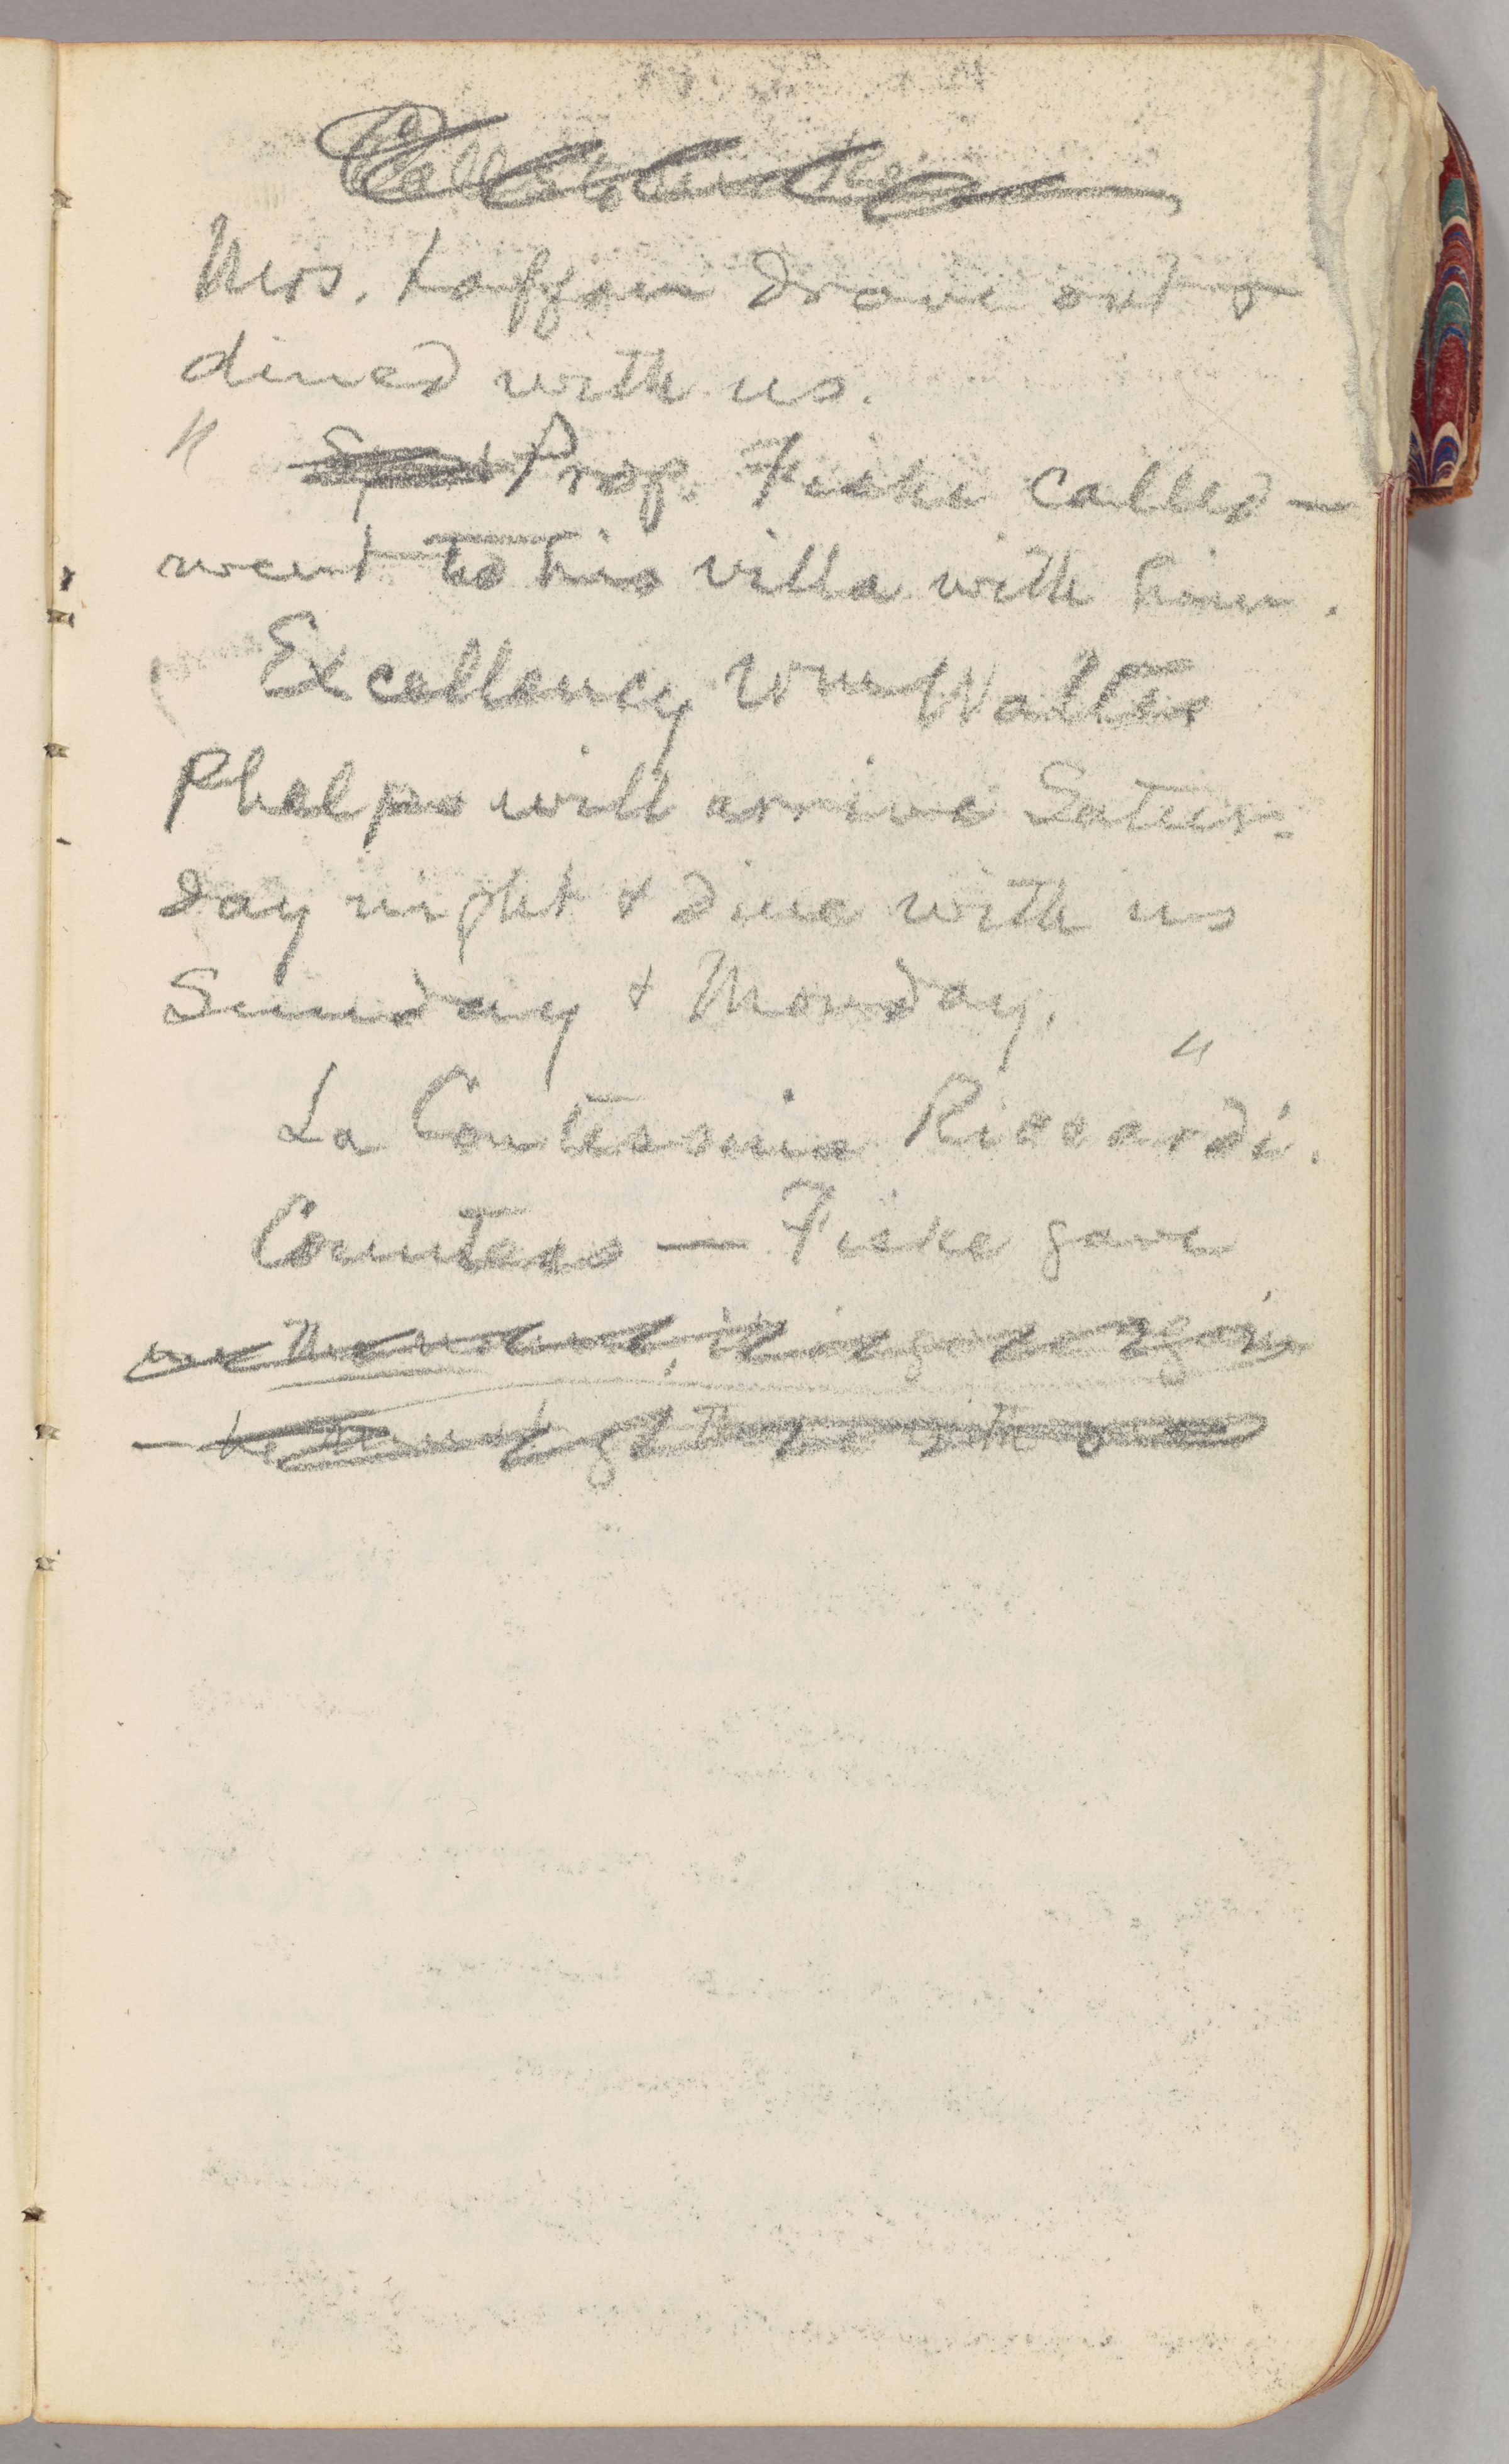 Mrs. Laffan drove out &
dined with us.
" Prof. Fiske called —
went to his villa with him.
Excellency Wm Walter
Phelps will arrive Satur-
day night & dine with us
Sunday & Monday. "
La Contessina Riccardi.
Countess — Fiske gave